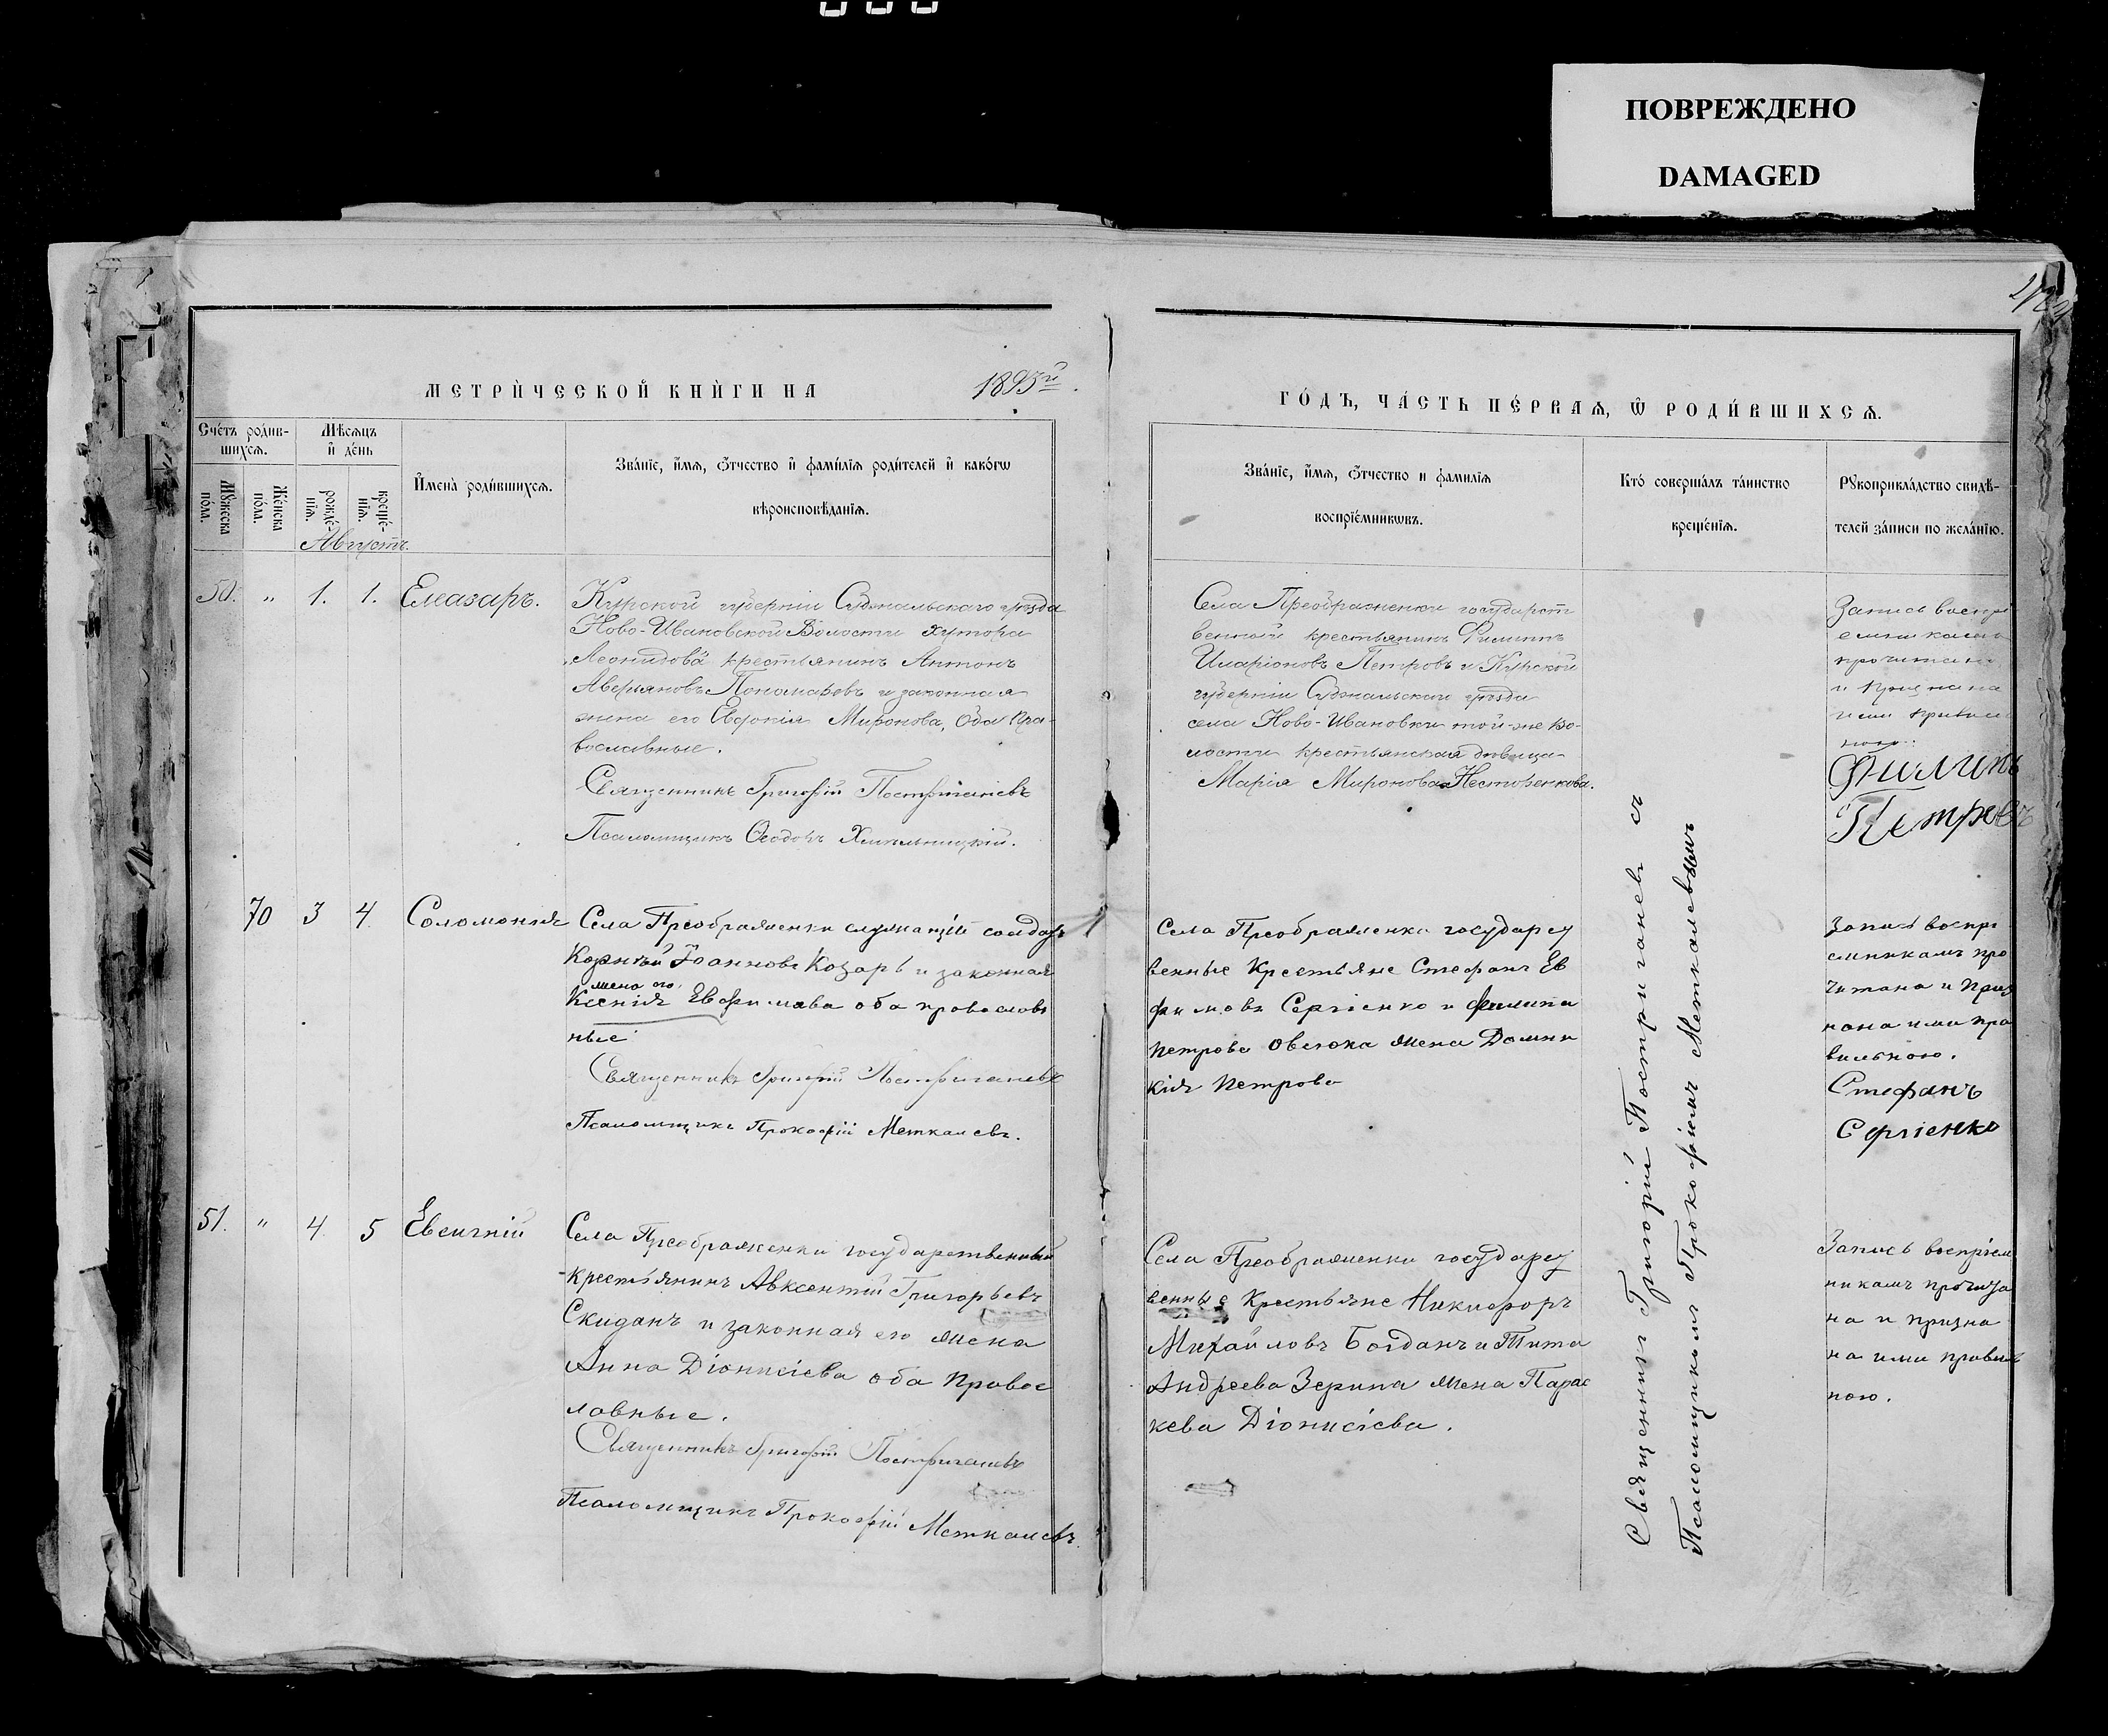 ПОВРЕЖДЕНО
DAMAGED
МЕТРИ́ЧЕСКОЙ КНИ́ГИ НА 1895й
ГО́ДЪ, ЧА́СТЬ ПЕ́РВАѦ, Ѽ РОДИ́ВШИХСѦ.
Сче́тъ роди́в-
шихсѧ.
Мѣсѧцъ
и҆ де́нь
Мꙋ́жеска
по́ла.
Же́нска
по́ла.
рожде́-
нїѧ.
креще́-
нїѧ.
И҆мена̀ роди́вшихсѧ.
Зва́нїе, и҆́мѧ, ѻ҆́тчество и҆ фами́лїѧ роди́телей и҆ како́гѡ
вѣроисповѣ́данїѧ.
Зва́нїе, и҆́мѧ, ѻ҆́тчество и фами́лїѧ
воспрїе́мникѡвъ.
Кто̀ соверша́лъ та́инство
креще́нїѧ.
Рꙋкоприкла́дство свидѣ́-
телей за́писи по жела́нїю.
Августъ.
50. " 1. 1. Елеазаръ.
Курской губерніи Суджальскаго уѣзда
Ново-Ивановской Волости хутора
Леонидова крестьянинъ Антонъ
Аверьяновъ Пономаровъ и законная
жена его Евдокія Миронова, Оба пра-
вославные.
Священникъ Григорій Постригачевъ
Псаломщикъ Ѳеодоръ Хмельницкій.
Села Преображенки государст
венный крестьянинъ Филиппъ
Иларіоновъ Петровъ и Курской
губерніи Суджальскаго уѣзда
села Ново-Ивановки той-же во-
лости крестьянская дѣвица
Марія Миронова Нестеренкова.
Запись воспрі
емникамъ
прочитана
и признана
ими правиль
ною.
Филипъ
Петровъ
70 3 4 Соломонія
Села Преображенки служащій солдатъ
Корній Іоанновъ Козарь и законная
жена его
Ксенія Евфимова оба православ
ные
Священникъ Григорій Постригачевъ
Псаломщикъ Прокофій Меткалевъ.
Села Преображенки государст
венные Крестьяне Стефанъ Ев
фимовъ Сергіенко и Филипа
Петрова Овсюка жена Домни
кія Петрова
Запись воспрі
емникамъ про
читана и приз
нана ими пра
вильною.
Стефанъ
Сергіенко
51. " 4 5 Евсигній
Села Преображенки государственный
крестьянинъ Авксентій Григорьевъ
Скиданъ и законная его жена
Анна Діонисіева оба правос
лавные.
Священникъ Григорій Постригачевъ
Псаломщикъ Прокофій Меткалевъ.
Села Преображенки государст
венные Крестьяне Никифоръ
Михайловъ Богданъ и Тита
Андреева Зерина жена Парас
кева Діонисіева.
Запись воспріем
никамъ прочита
на и призна
на ими правиль
ною.
Священникъ Григорій Постригачевъ съ
Псаломщикомъ Прокофіемъ Меткалевымъ